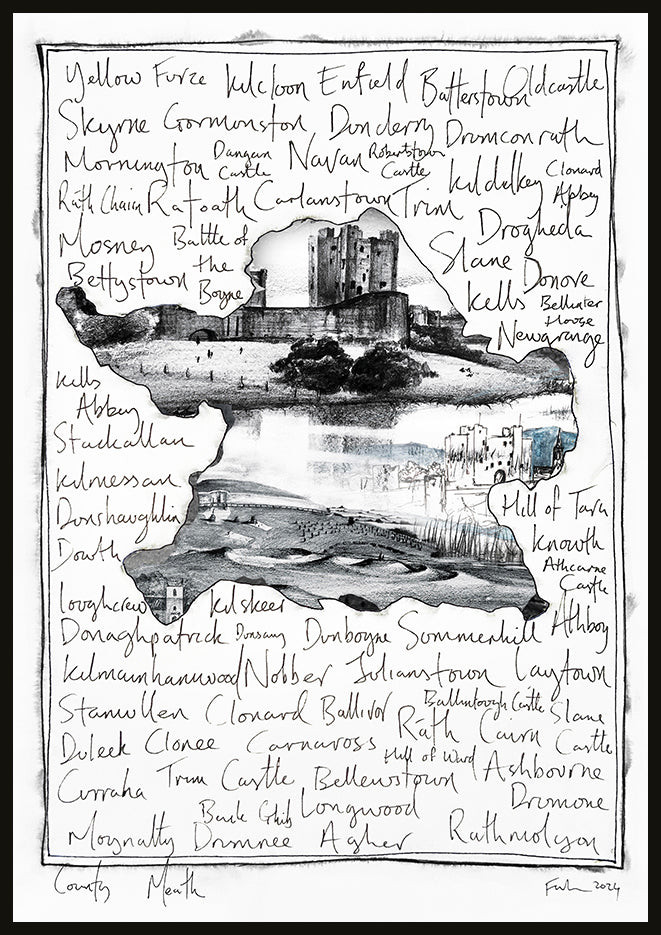 Yellow Furze Kilcloon Enfield Batterstown Oldcastle
Skyrne Gormonston Dunderry Drumconrath
Mornington Dangan Castle Navan Robertstown Castle Kildalkey Clonard Abbey
Rath Chairn Ratoath Carlanstown Trim Drogheda
Mosney Battle of the Boyne Slane Donore
Bettystown Kells Bellinter House
Newgrange
Kells
Abbey
Stackallan
Kilmessan Hill of Tara
Dunshaughlin Knowth
Dowth Athcarne Castle
Loughcrew Kilskeer Athboy
Donaghpatrick Dunsany Dunboyne Summerhill
Kilmainhamwood Nobber Julianstown Laytown
Stamullen Clonard Ballivor Rath Cairn Slane Castle
Duleek Clonee Carnaross Hill of Ward Ashbourne
Curraha Trim Castle Bellewstown Dromone
Longwood
Moynalty Drumree Agher Rathmolyon
County Meath 2024